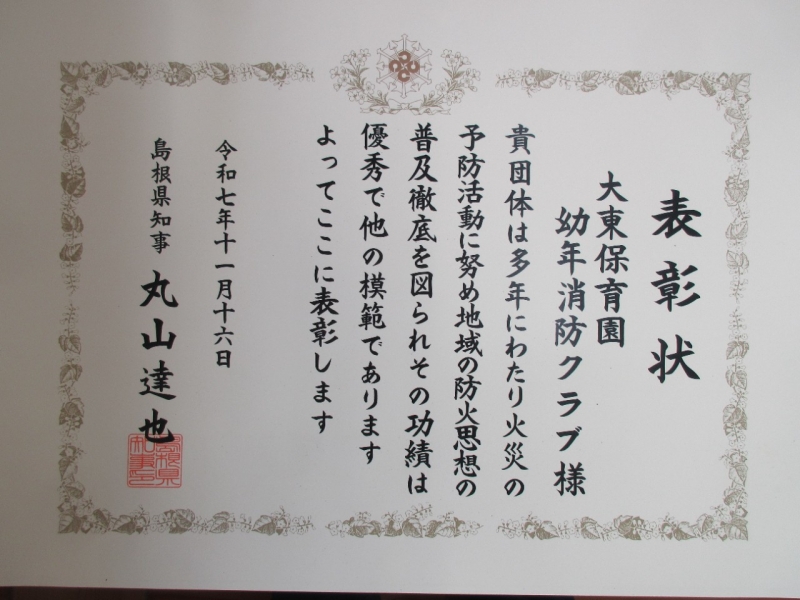 表彰状
大東保育園
幼年消防クラブ様
貴団体は多年にわたり火災の
予防活動に努め地域の防火思想の
普及徹底を図られその功績は
優秀で他の模範であります
よってここに表彰します
令和七年十一月十六日
島根県知事 丸山達也
島根県知事印